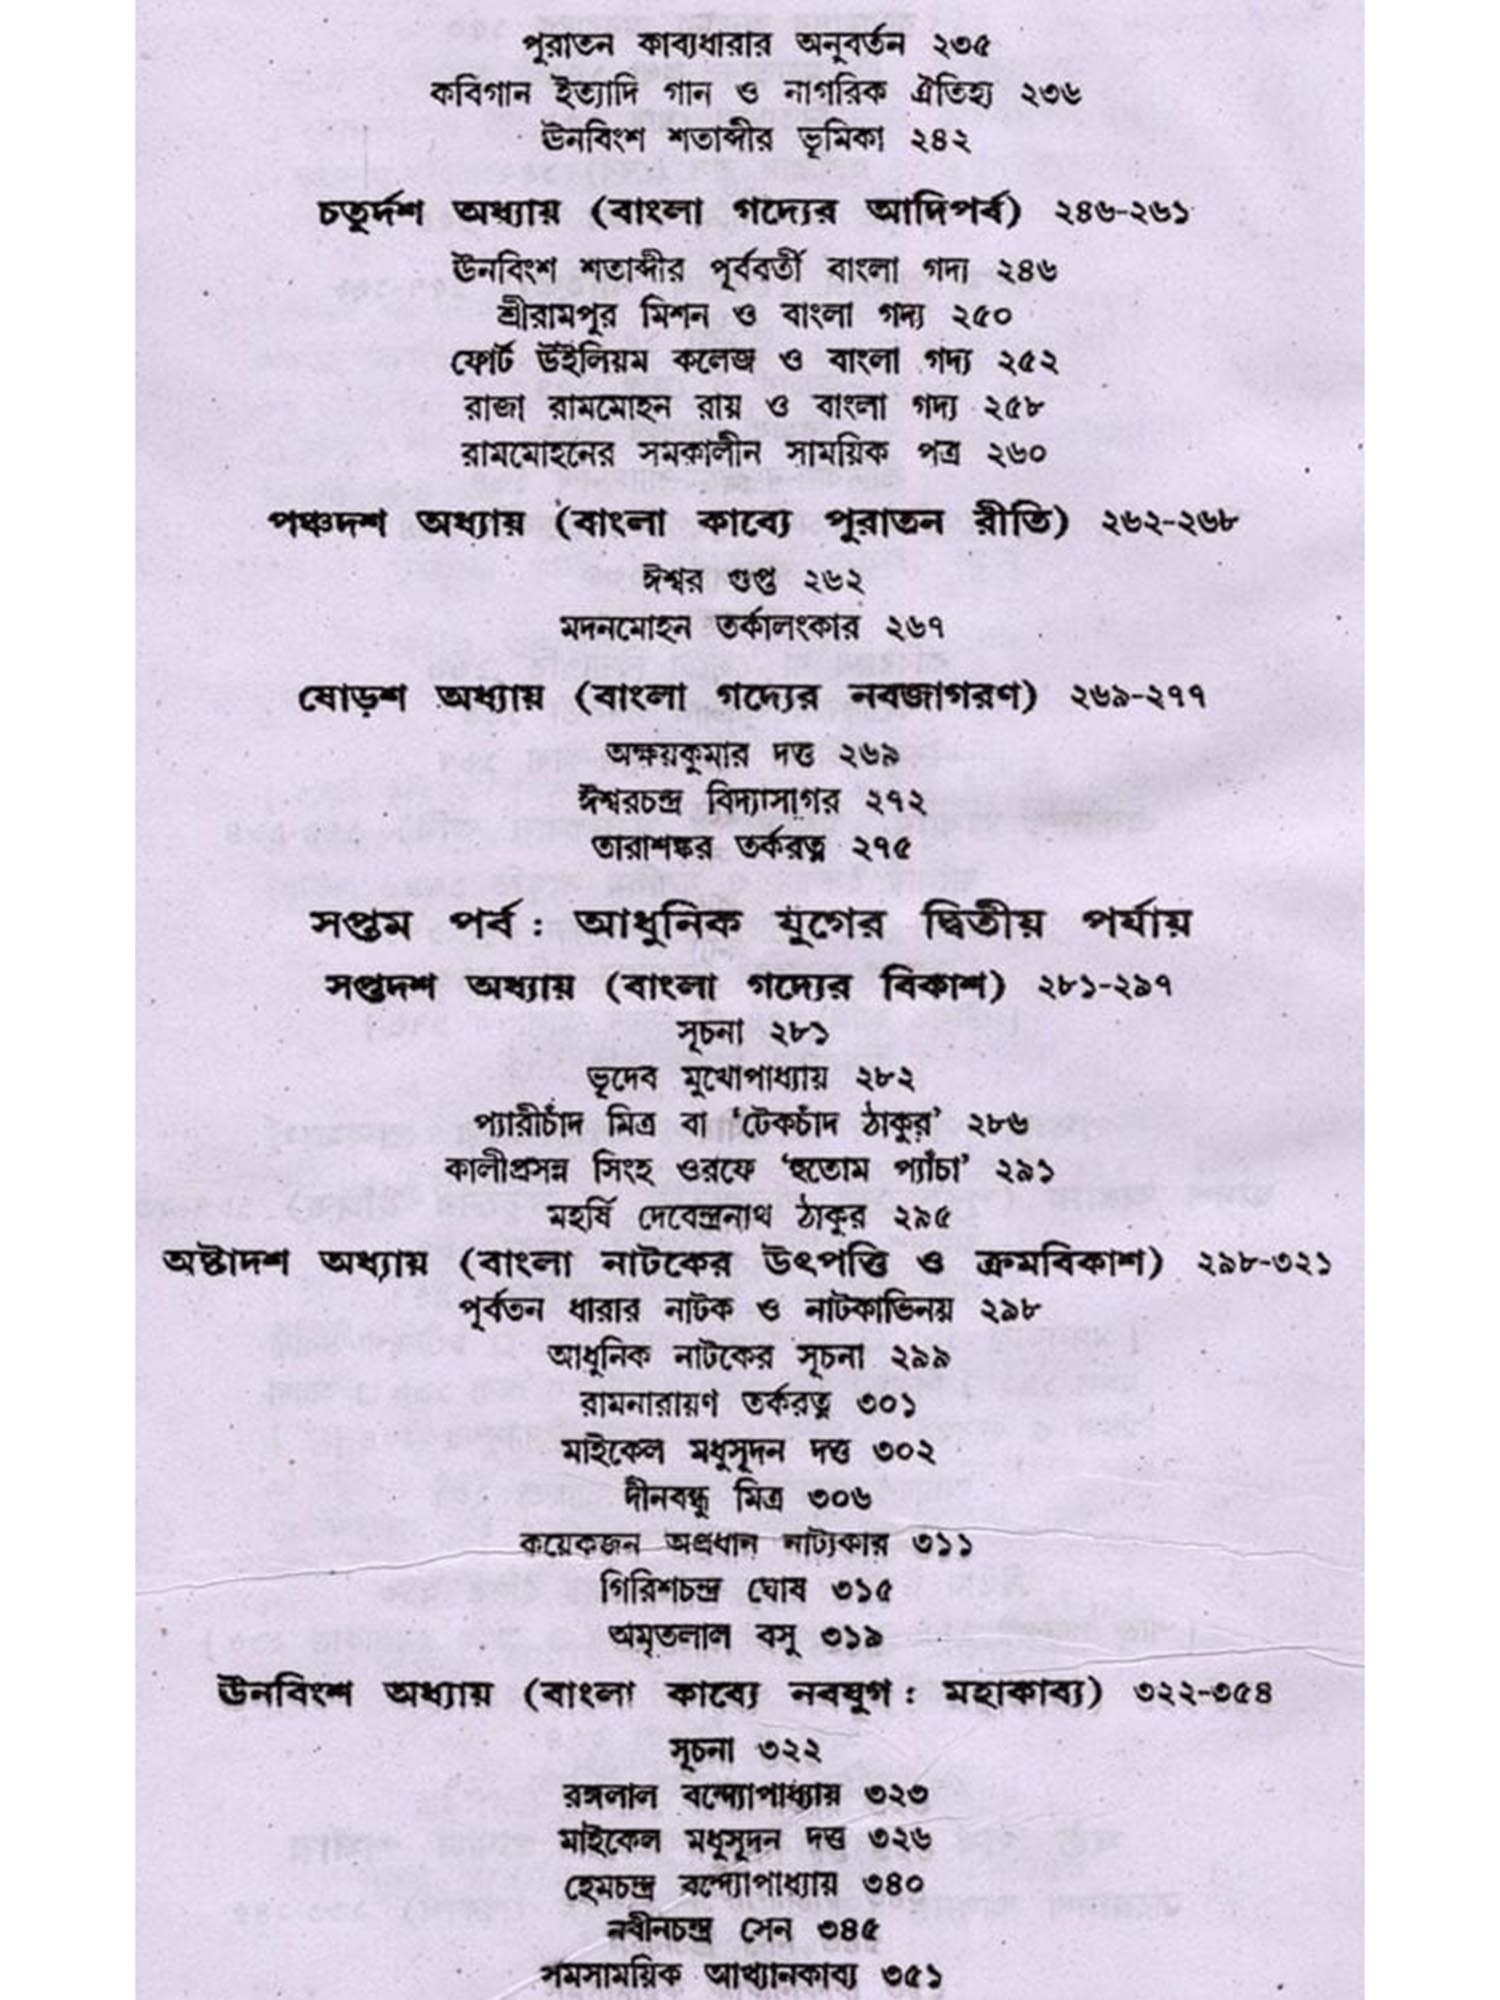 পুরাতন কাব্যধারার অনুবর্তন ২৩৫
কবিগান ইত্যাদি গান ও নাগরিক ঐতিহ্য ২৩৬
ঊনবিংশ শতাব্দীর ভূমিকা ২৪২
চতুর্দশ অধ্যায় (বাংলা গদ্যের আদিপর্ব) ২৪৬-২৬১
ঊনবিংশ শতাব্দীর পূর্ববর্তী বাংলা গদ্য ২৪৬
শ্রীরামপুর মিশন ও বাংলা গদ্য ২৫০
ফোর্ট উইলিয়ম কলেজ ও বাংলা গদ্য ২৫২
রাজা রামমোহন রায় ও বাংলা গদ্য ২৫৮
রামমোহনের সমকালীন সাময়িক পত্র ২৬০
পঞ্চদশ অধ্যায় (বাংলা কাব্যে পুরাতন রীতি) ২৬২-২৬৮
ঈশ্বর গুপ্ত ২৬২
মদনমোহন তর্কালংকার ২৬৭
ষোড়শ অধ্যায় (বাংলা গদ্যের নবজাগরণ) ২৬৯-২৭৭
অক্ষয়কুমার দত্ত ২৬৯
ঈশ্বরচন্দ্র বিদ্যাসাগর ২৭২
তারাশঙ্কর তর্করত্ন ২৭৫
সপ্তম পর্ব : আধুনিক যুগের দ্বিতীয় পর্যায়
সপ্তদশ অধ্যায় (বাংলা গদ্যের বিকাশ) ২৮১-২৯৭
সূচনা ২৮১
ভূদেব মুখোপাধ্যায় ২৮২
প্যারীচাঁদ মিত্র বা ‘টেকচাঁদ ঠাকুর’ ২৮৬
কালীপ্রসন্ন সিংহ ওরফে ‘হুতোম প্যাঁচা’ ২৯১
মহর্ষি দেবেন্দ্রনাথ ঠাকুর ২৯৫
অষ্টাদশ অধ্যায় (বাংলা নাটকের উৎপত্তি ও ক্রমবিকাশ) ২৯৮-৩২১
পূর্বতন ধারার নাটক ও নাটকাভিনয় ২৯৮
আধুনিক নাটকের সূচনা ২৯৯
রামনারায়ণ তর্করত্ন ৩০১
মাইকেল মধুসূদন দত্ত ৩০২
দীনবন্ধু মিত্র ৩০৬
কয়েকজন অপ্রধান নাট্যকার ৩১১
গিরিশচন্দ্র ঘোষ ৩১৫
অমৃতলাল বসু ৩১৯
ঊনবিংশ অধ্যায় (বাংলা কাব্যে নবযুগ : মহাকাব্য) ৩২২-৩৫৪
সূচনা ৩২২
রঙ্গলাল বন্দ্যোপাধ্যায় ৩২৩
মাইকেল মধুসূদন দত্ত ৩২৬
হেমচন্দ্র বন্দ্যোপাধ্যায় ৩৪০
নবীনচন্দ্র সেন ৩৪৫
সমসাময়িক আখ্যানকাব্য ৩৫১